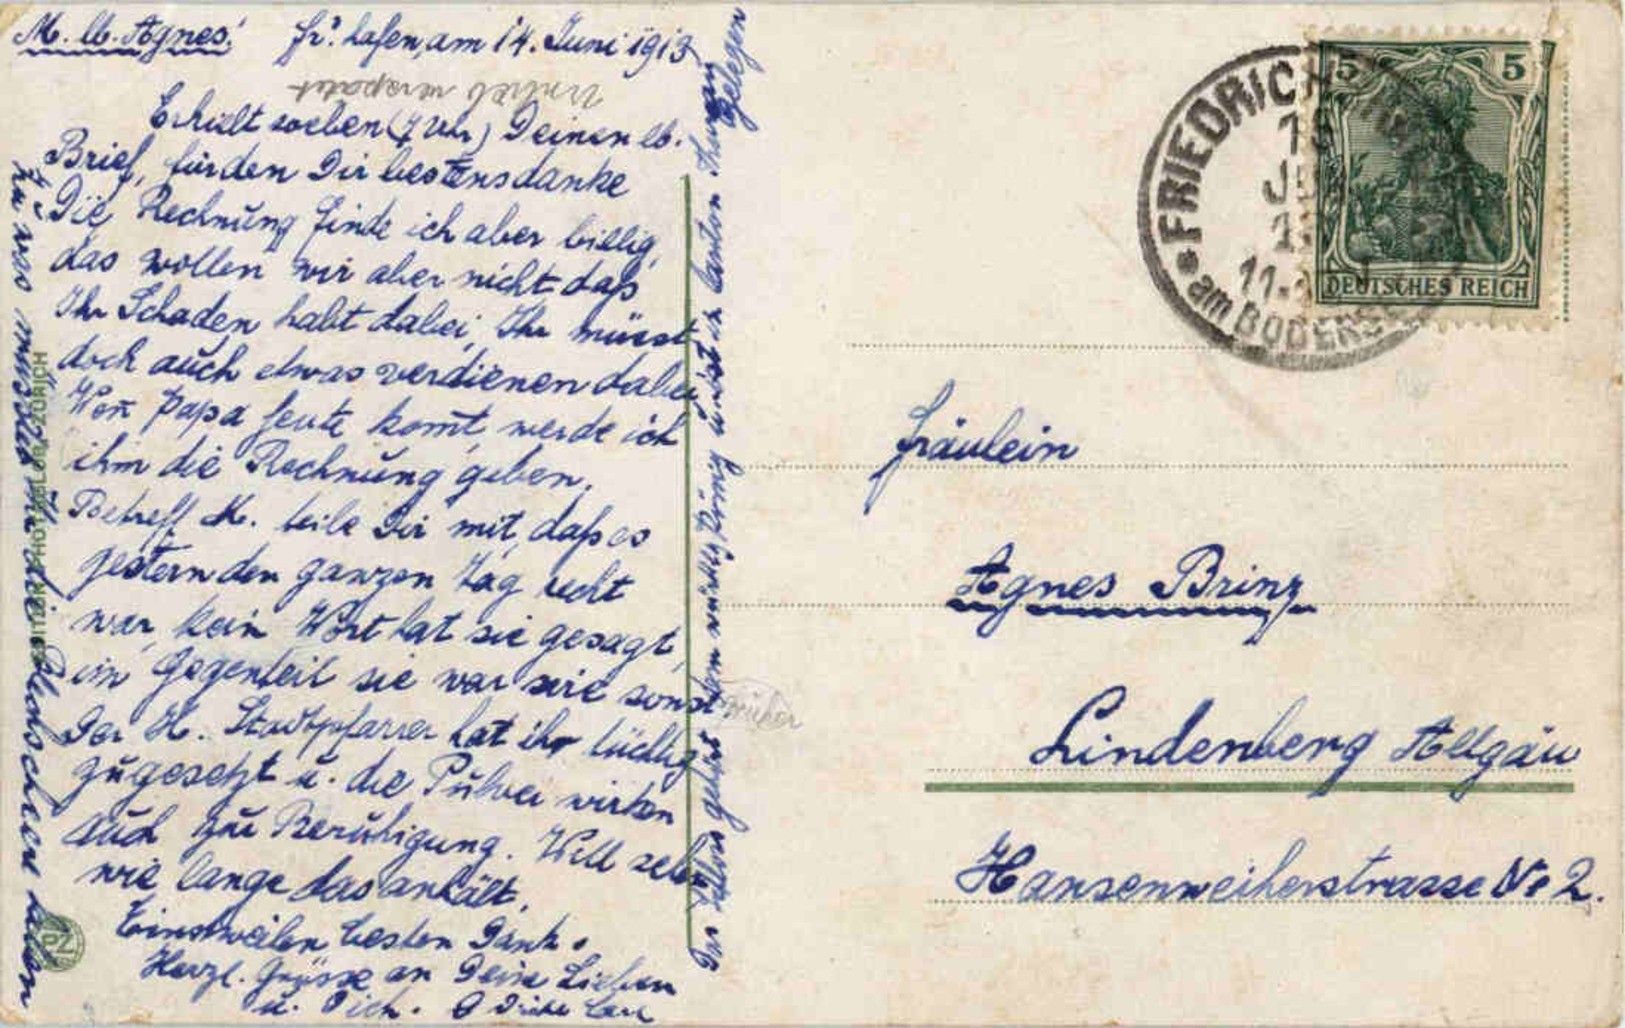 M. lb. Agnes! Fr'hafen, am 14. Juni 1913
Erhielt soeben (7 Uhr) Deinen lb.
Brief, für den Dir bestens danke
Die Rechnung finde ich aber billig,
das wollen wir aber nicht daß
Ihr Schaden habt dabei, Ihr müsst
doch auch etwas verdienen dabei
Wen̄ Papa heute kom̄t, werde ich
ihm die Rechnung geben.
Betreff M. teile Dir mit, daß es
gestern den ganzen Tag recht
war, kein Wort hat sie gesagt,
im Gegenteil sie war wie sonst
Der H. Stadtpfarrer hat ihr tüchtig
zugesetzt u. die Pulver wirken
auch zur Beruhigung. Will sehen
wie lange das anhält.
Einstweilen besten Dank.
Herzl. Grüsse an Deine Lieben
u. Dich.
zu was müsstet Ihr die Blechschere haben
PHOTOGLOB ZÜRICH
PZ
5 5
DEUTSCHES REICH
FRIEDRICH
am BODENSEE
Fräulein
Agnes Brinz
Lindenberg Allgäu
Hansenweiherstrasse No 2.